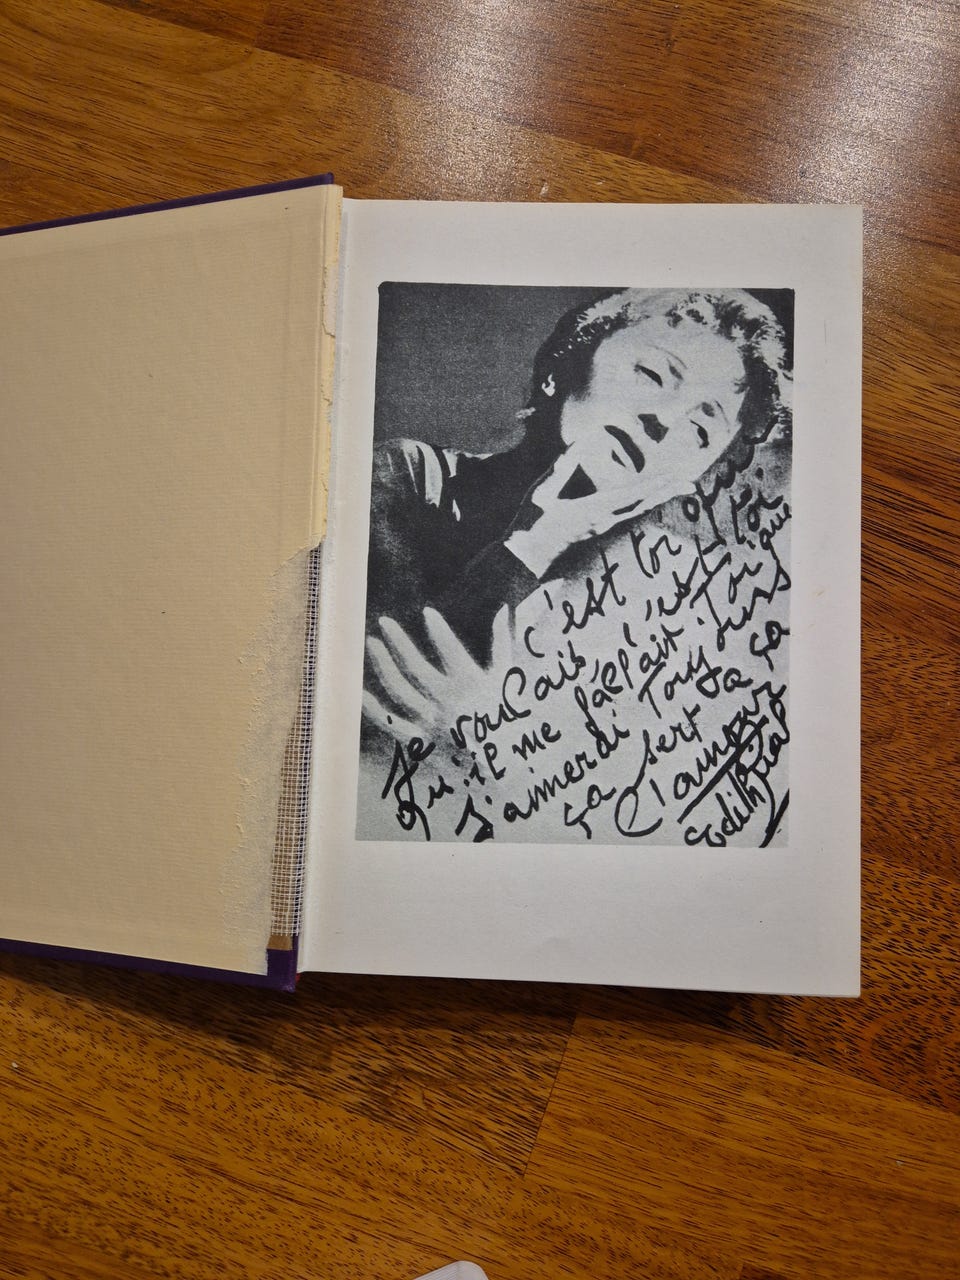 c'est toi que
je voulais c'est toi
qu'il me fallait Toi que
J'aimerai Toujours
ça sert à ça
l'amour
Edith Piaf